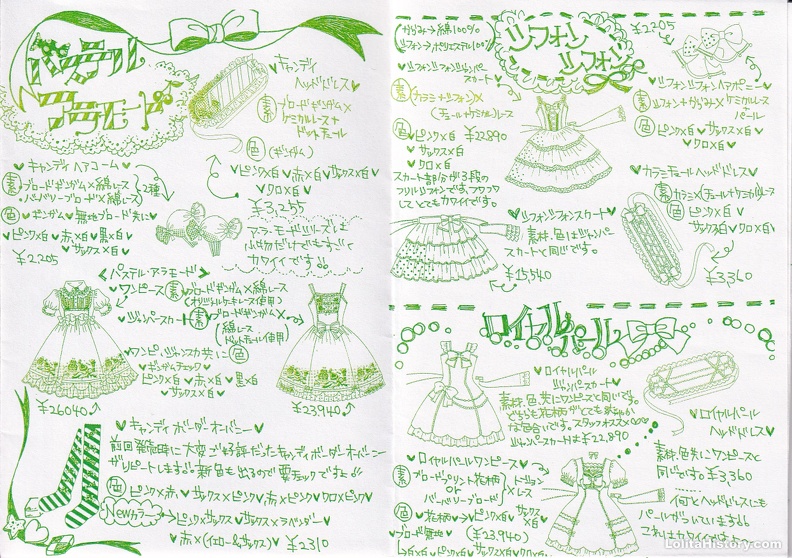 パステル
アラモード♪
♥キャンディ
ヘッドドレス♥
素 ブロードギンガム×
ケミカルレース+
ドットチュール
色 (ギンガム)
♥ピンク×白♥赤×白♥サックス×白
♥クロ×白♥
¥3,255
アラモードシリーズは
小物だけでもすごく
カワイイです!!
♥キャンディヘアコーム♥
素 ブロードギンガム×綿レース
・バーバリーブロード×綿レース
2種
色 ♥ギンガム、無地ブロード共に♥
♥ピンク×白♥赤×白♥黒×白♥
♥サックス×白♥
¥2,205
パステル・アラモード
♥ワンピース 素 ブロードギンガム×綿レース
(オリジナルケミレース使用)
♥ジャンパースカート 素 ブロードギンガム×
(綿レース、
ドットチュール使用)
♥ワンピ・ジャンスカ共に 色
♥ギンガムチェック♥
ピンク×白♥赤×白♥黒×白
♥サックス×白♥
¥26040
¥23940
♥キャンディボーダーオーバーニー
前回発売時に大変ご好評だったキャンディボーダーオーバーニー
がリピートします!!新色も出るので要チェックですよ!!
色 ピンク×赤♥サックス×ピンク♥赤×ピンク♥クロ×ピンク♥
Newカラー→♥ピンク×サックス♥サックス×ラベンダー♥
赤×(イエロー&サックス)♥ ¥2310
シフォン
シフォン
からみ→綿100%
シフォン→ポリエステル100%
♥シフォンシフォンジャンパー
スカート♥
素 (カラミ×シフォン)×
(チュールケミカルレース)
色 ♥ピンク×白♥ ¥22890
♥サックス×白
♥クロ×白
スカート部分が3段の
フリルシフォンです。フワフワ
してとてもカワイイです。
¥2205
♥シフォンシフォンヘアポニー♥
素 シフォン+からみ×ケミカルレース
パール
色 ♥ピンク×白♥サックス×白♥
♥クロ×白♥
♥カラミチュールヘッドドレス♥
素 カラミ×(チュール+ケミカル)レース
色 ♥ピンク×白♥
サックス×白♥クロ×白♥
¥3,360
♥シフォンシフォンスカート♥
素材、色はジャンパー
スカートと同じです。
¥15,540
ロイヤルパール
♥ロイヤルパール
ジャンパースカート♥
素材、色、共にワンピースと同じです。
¥22,890
♥ロイヤルパール
ヘッドドレス♥
素材、色共にワンピースと
同じです。¥3,360
何とヘッドドレスにも
パールがついています!!
これはカワイイ!!
♥ロイヤルパールワンピース♥
素 ブロードプリント花柄
or
バーバリーブロード
×レース
色 ♥花柄→♥ピンク×白♥サックス
×白
ブロード無地♥
(¥23940)
LolitaHistory.com